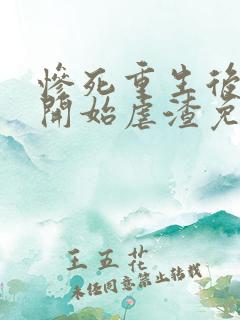 慘死重生後
開始虐渣兔
王五花
未經同意禁止轉載